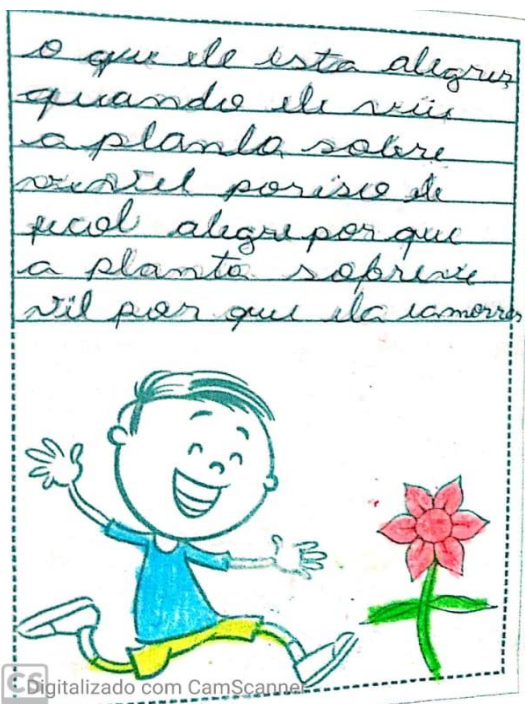 o que ele esta alegres
quando ele viu
a planta sobre
viviel poriso ele
ficol alegre por que
a planta sopreve
vil por que ela iamorrer
CS Digitalizado com CamScanner